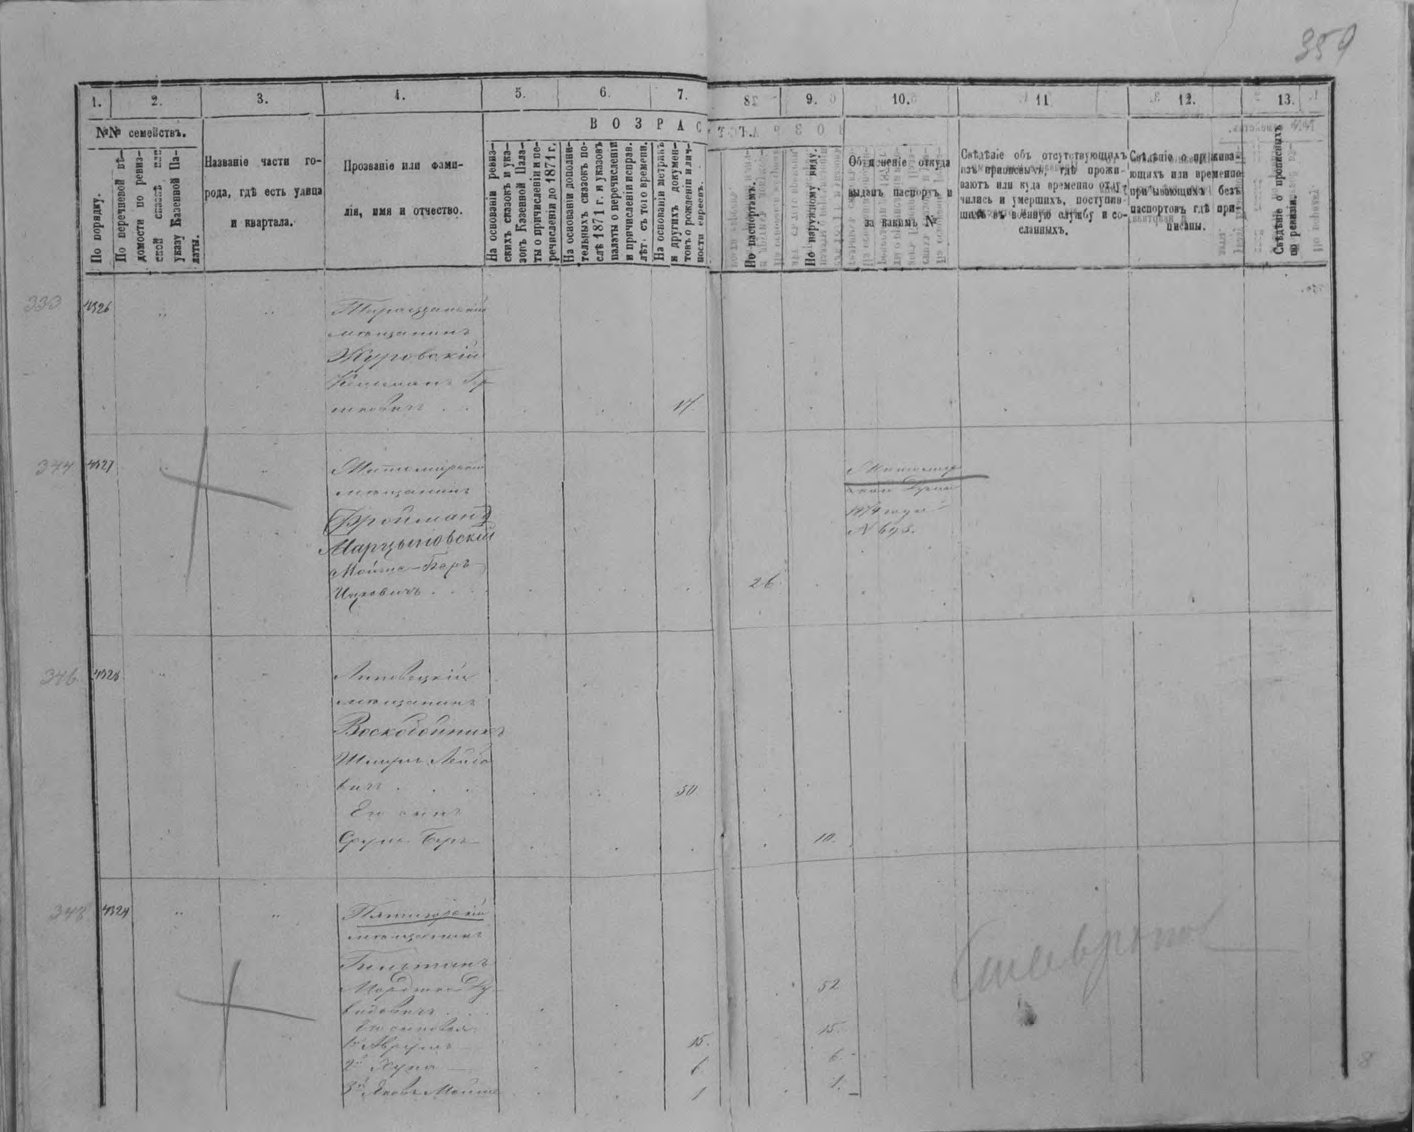 359
1. 2. 3. 4. 5. 6. 7. 8 9. 10. 11 12. 13.
№№ семействъ.
ВОЗРАСТЪ.
По порядку.
По перечневой вѣ-
домости по ревиз-
ской сказкѣ или
указу Казенной Па-
латы.
Названіе части го-
рода, гдѣ есть улица
и квартала.
Прозваніе или фами-
лія, имя и отчество.
На основаніи ревиз-
скихъ сказокъ и ука-
зовъ Казенной Пала-
ты о причисленіи и пе-
речисленіи до 1871 г.
На основаніи дополни-
тельныхъ сказокъ по-
слѣ 1871 г. и указовъ
палаты о перечисленіи
и причисленіи исправ.
лѣт. съ того времени.
На основаніи метрикъ
и другихъ докумен-
товъ о рожденіи и лич-
ности евреевъ.
По паспортамъ.
По наружному виду.
Объясненіе откуда
выданъ паспортъ и
за какимъ №
Свѣдѣніе объ отсутствующихъ
изъ приписныхъ, гдѣ прожи-
ваютъ или куда временно отлу-
чились и умершихъ, поступив-
шихъ въ военную службу и со-
сланныхъ.
Свѣдѣніе о прожива-
ющихъ или временно
пребывающихъ безъ
паспортовъ гдѣ при-
писаны.
Свѣдѣніе о прописныхъ
по ревизіи.
333 4326
мѣщанинъ
Журовскій
17
344 4327 Житомирскій
мѣщанинъ
Фройманъ
Марцыновскій
Мойше-Беръ
Ицковичъ
26
1874 года
№ 698.
346 4328 Липовецкій
мѣщанинъ
Воскобойникъ
Шмуль Лейбо
вичъ
50
Его сынъ
Сруль Беръ
10.
348 4329 Пятигорскій
мѣщанинъ
Гольтманъ
Мордко Ду-
видовичъ
52
Его сыновья
15.
1й Аврумъ 15.
2й 6 6
3й Янкель Мойше 1 1.
Ставрополь